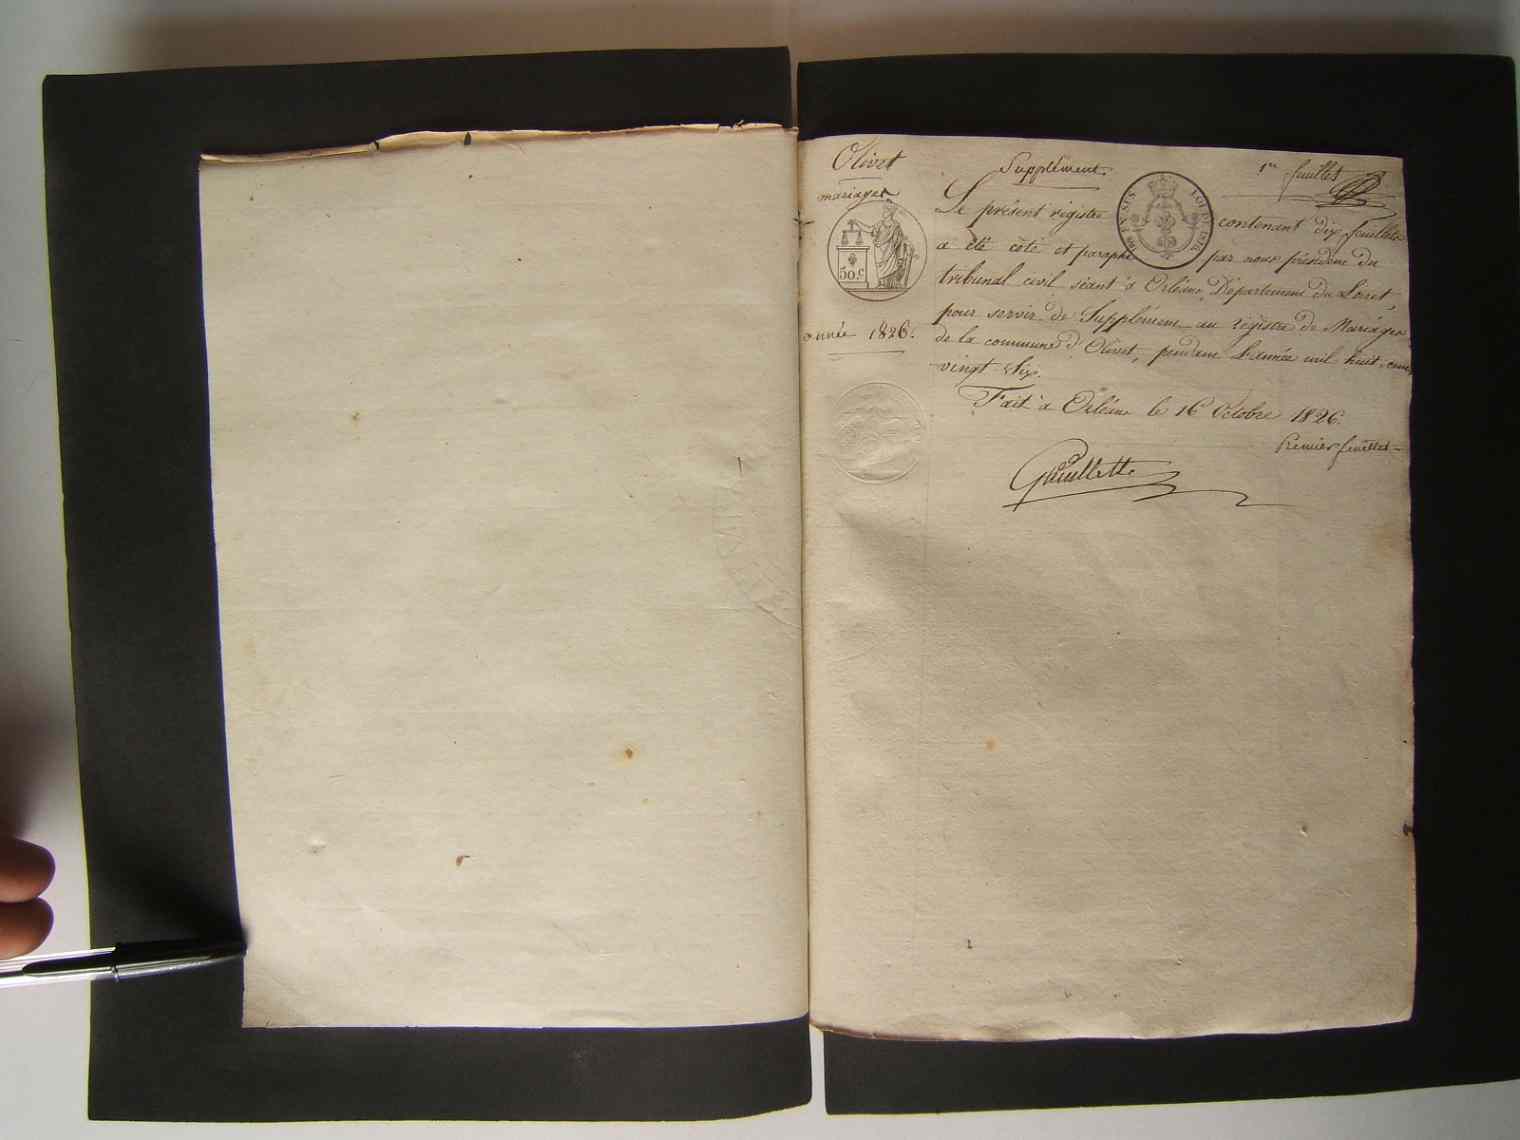 Olivet
mariages
50.C
année 1826.
Supplément.
1er feuillet
Le présent registre contenant dix feuillets
a été coté et paraphé par nous président du
tribunal civil séant à Orléans, Département du Loiret,
pour servir de Supplément au registre de Mariages
de la commune d'Olivet, pendant l'année mil huit cent
vingt Six.
Fait à Orléans le 16 Octobre 1826.
Premier feuillet